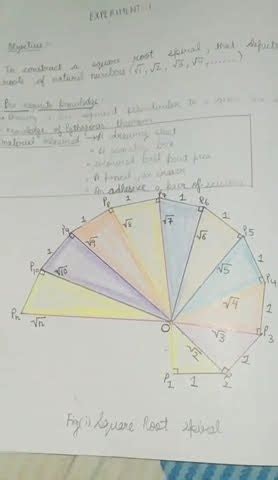 EXPERIMENT: 1
Objective:-
To construct a square root spiral, that depicts
roots of natural numbers (√1, √2, √3, √4, .......)
Pre requisite knowledge:-
Drawing a line segment perpendicular to a
Knowledge of Pythagoras theorem
Material required - A drawing sheet
A geometry box
Coloured
A pencil, an eraser
An adhesive, a pair of scissors
P8 1 P7 1 P6
1 √8 √7 √6 1
P9 P5
1 √9 √5 1
P10 √10 √4 P4
1
Pn √n O √3 P3
√2 1
P1 1 2
Fig(i) Square Root spiral